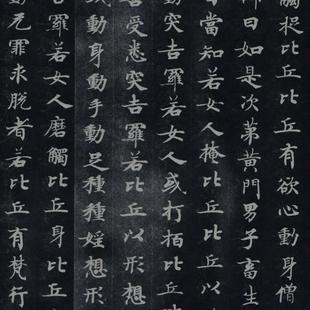 捉比丘比丘有欲心動身僧
曰如是次第黃門男子畜生
當知若女人掩比丘比丘以
突吉羅若女人或打拍比丘
受悉突吉羅若比丘以形想
動身動手動足種種婬想形
羅若女人磨觸比丘身比丘
无罪求脫者若比丘有梵行